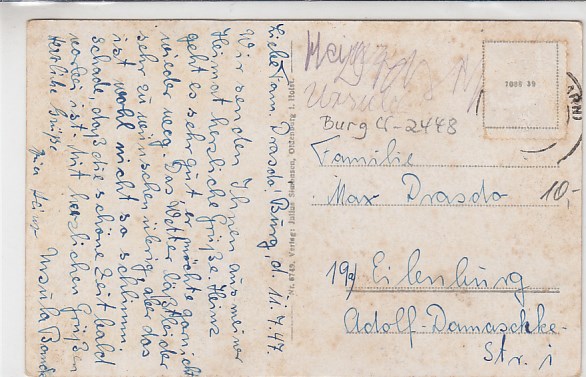 Liebe Fam. Drasdo! Burg, d. 11.7.47
Wir senden Ihnen aus meiner
Heimat herzliche Grüße. Heinz
geht es sehr gut er möchte gar nicht
wieder weg. Das Wetter läßt leider
sehr zu wünschen übrig aber das
ist wohl nicht so schlimm.
schade, daß die schöne Zeit bald
vorbei ist. Mit herzlichen Grüßen
Herzliche Grüße Ursula
Heinz
Nr. 8749, Verlag: Julius Simonsen, Oldenburg i. Holst.
Heinz
Ursula
Burg Cr-2448
Familie
Max Drasdo
10,-
19a Eilenburg
Adolf-Damaschke-
Str. 1